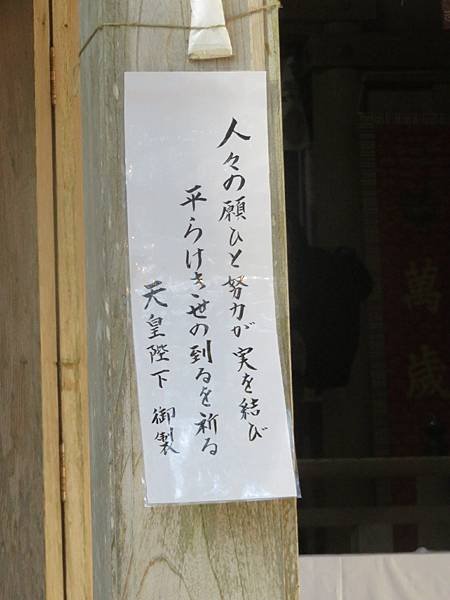 人々の願ひと努力が実を結び
平らけき世の到るを祈る
天皇陛下 御製
萬歳